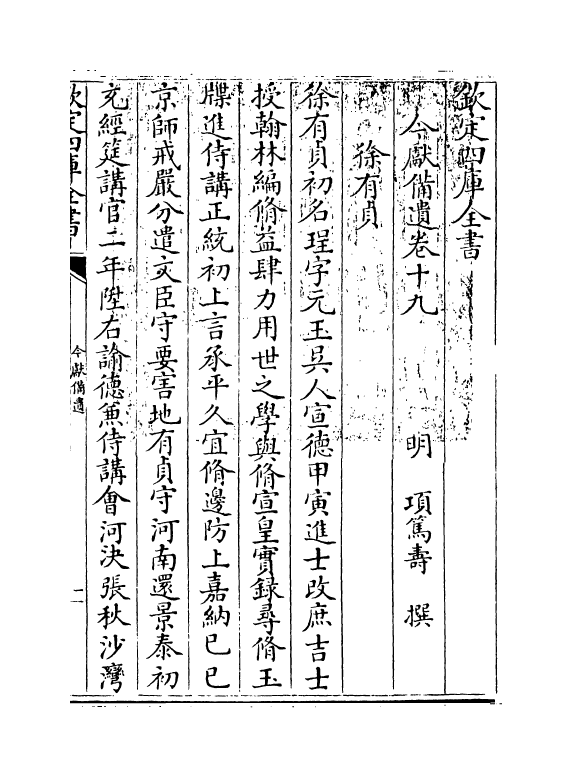 欽定四庫全書
今獻備遺卷十九　　明　項篤壽　撰
徐有貞
徐有貞初名珵字元玉吳人宣德甲寅進士改庶吉士
授翰林編脩益肆力用世之學與脩宣皇實録尋脩玉
牒進侍講正統初上言承平久宜脩邊防上嘉納己巳
京師戒嚴分遣文臣守要害地有貞守河南還景泰初
充經筵講官二年陞右諭德兼侍講會河決張秋沙灣
欽定四庫全書
今獻備遺